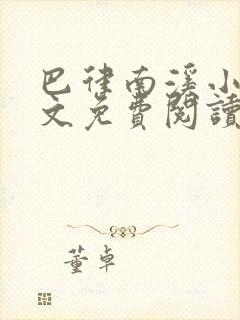 巴律南溪小
文免費閱讀
董卓